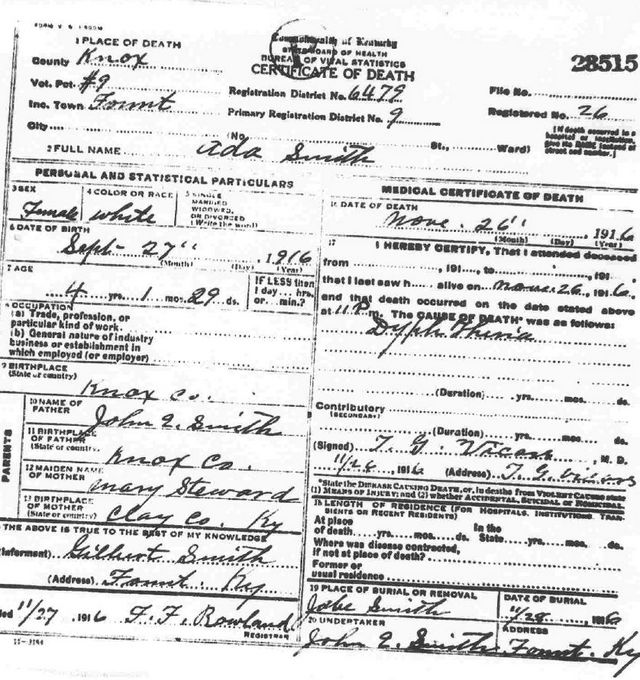 1 PLACE OF DEATH
County Knox
Vot. Pct. #9
Inc. Town Fount
City
Commonwealth of Kentucky
STATE BOARD OF HEALTH
BUREAU OF VITAL STATISTICS
CERTIFICATE OF DEATH
Registration District No. 6479
Primary Registration District No. 9
(No. St., Ward)
28515
File No.
Registered No. 26
[If death occurred in a
hospital or institution,
give its NAME instead of
street and number.]
2 FULL NAME Ada Smith
PERSONAL AND STATISTICAL PARTICULARS
3 SEX
Female
4 COLOR OR RACE
White
5 SINGLE
MARRIED
WIDOWED,
OR DIVORCED
(Write the word)
6 DATE OF BIRTH
Sept 27" , 1916
(Month) (Day) (Year)
7 AGE
4 yrs. 1 mos. 29 ds.
IF LESS than
1 day, hrs.
or min.?
8 OCCUPATION
(a) Trade, profession, or
particular kind of work.
(b) General nature of industry
business or establishment in
which employed (or employer)
9 BIRTHPLACE
(State or country)
Knox Co.
PARENTS
10 NAME OF
FATHER
John Q. Smith
11 BIRTHPLACE
OF FATHER
(State or country)
Knox Co.
12 MAIDEN NAME
OF MOTHER
Mary Steward
13 BIRTHPLACE
OF MOTHER
(State or country)
Clay Co. Ky
THE ABOVE IS TRUE TO THE BEST OF MY KNOWLEDGE
(Informant) Gilbert Smith
(Address) Fount Ky
11/27 1916 F. F. Rowland
REGISTRAR
11-3184
MEDICAL CERTIFICATE OF DEATH
16 DATE OF DEATH
Nove 26" , 1916
(Month) (Day) (Year)
17 I HEREBY CERTIFY, That I attended deceased
from , 191 , to , 191
that I last saw h alive on Nove. 26, 1916.
and that death occurred on the date stated above
at 11 P m. The CAUSE OF DEATH* was as follows:
Dyphtheria
(Duration) yrs. mos. ds.
Contributory
(SECONDARY)
(Duration) yrs. mos. ds.
(Signed) T. G. Vicars, M. D.
11/26 1916 (Address) T. G. Vicars
*State the DISEASE CAUSING DEATH, or, in deaths from VIOLENT CAUSES state
(1) MEANS OF INJURY; and (2) whether ACCIDENTAL, SUICIDAL or HOMICIDAL.
18 LENGTH OF RESIDENCE (FOR HOSPITALS, INSTITUTIONS, TRANSIENTS OR RECENT RESIDENTS)
At place of death yrs. mos. ds. In the State yrs. mos. ds.
Where was disease contracted,
if not at place of death?
Former or
usual residence
19 PLACE OF BURIAL OR REMOVAL
Jobe Smith
DATE OF BURIAL
11/28 1916
20 UNDERTAKER
John Q. Smith
ADDRESS
Fount. Ky